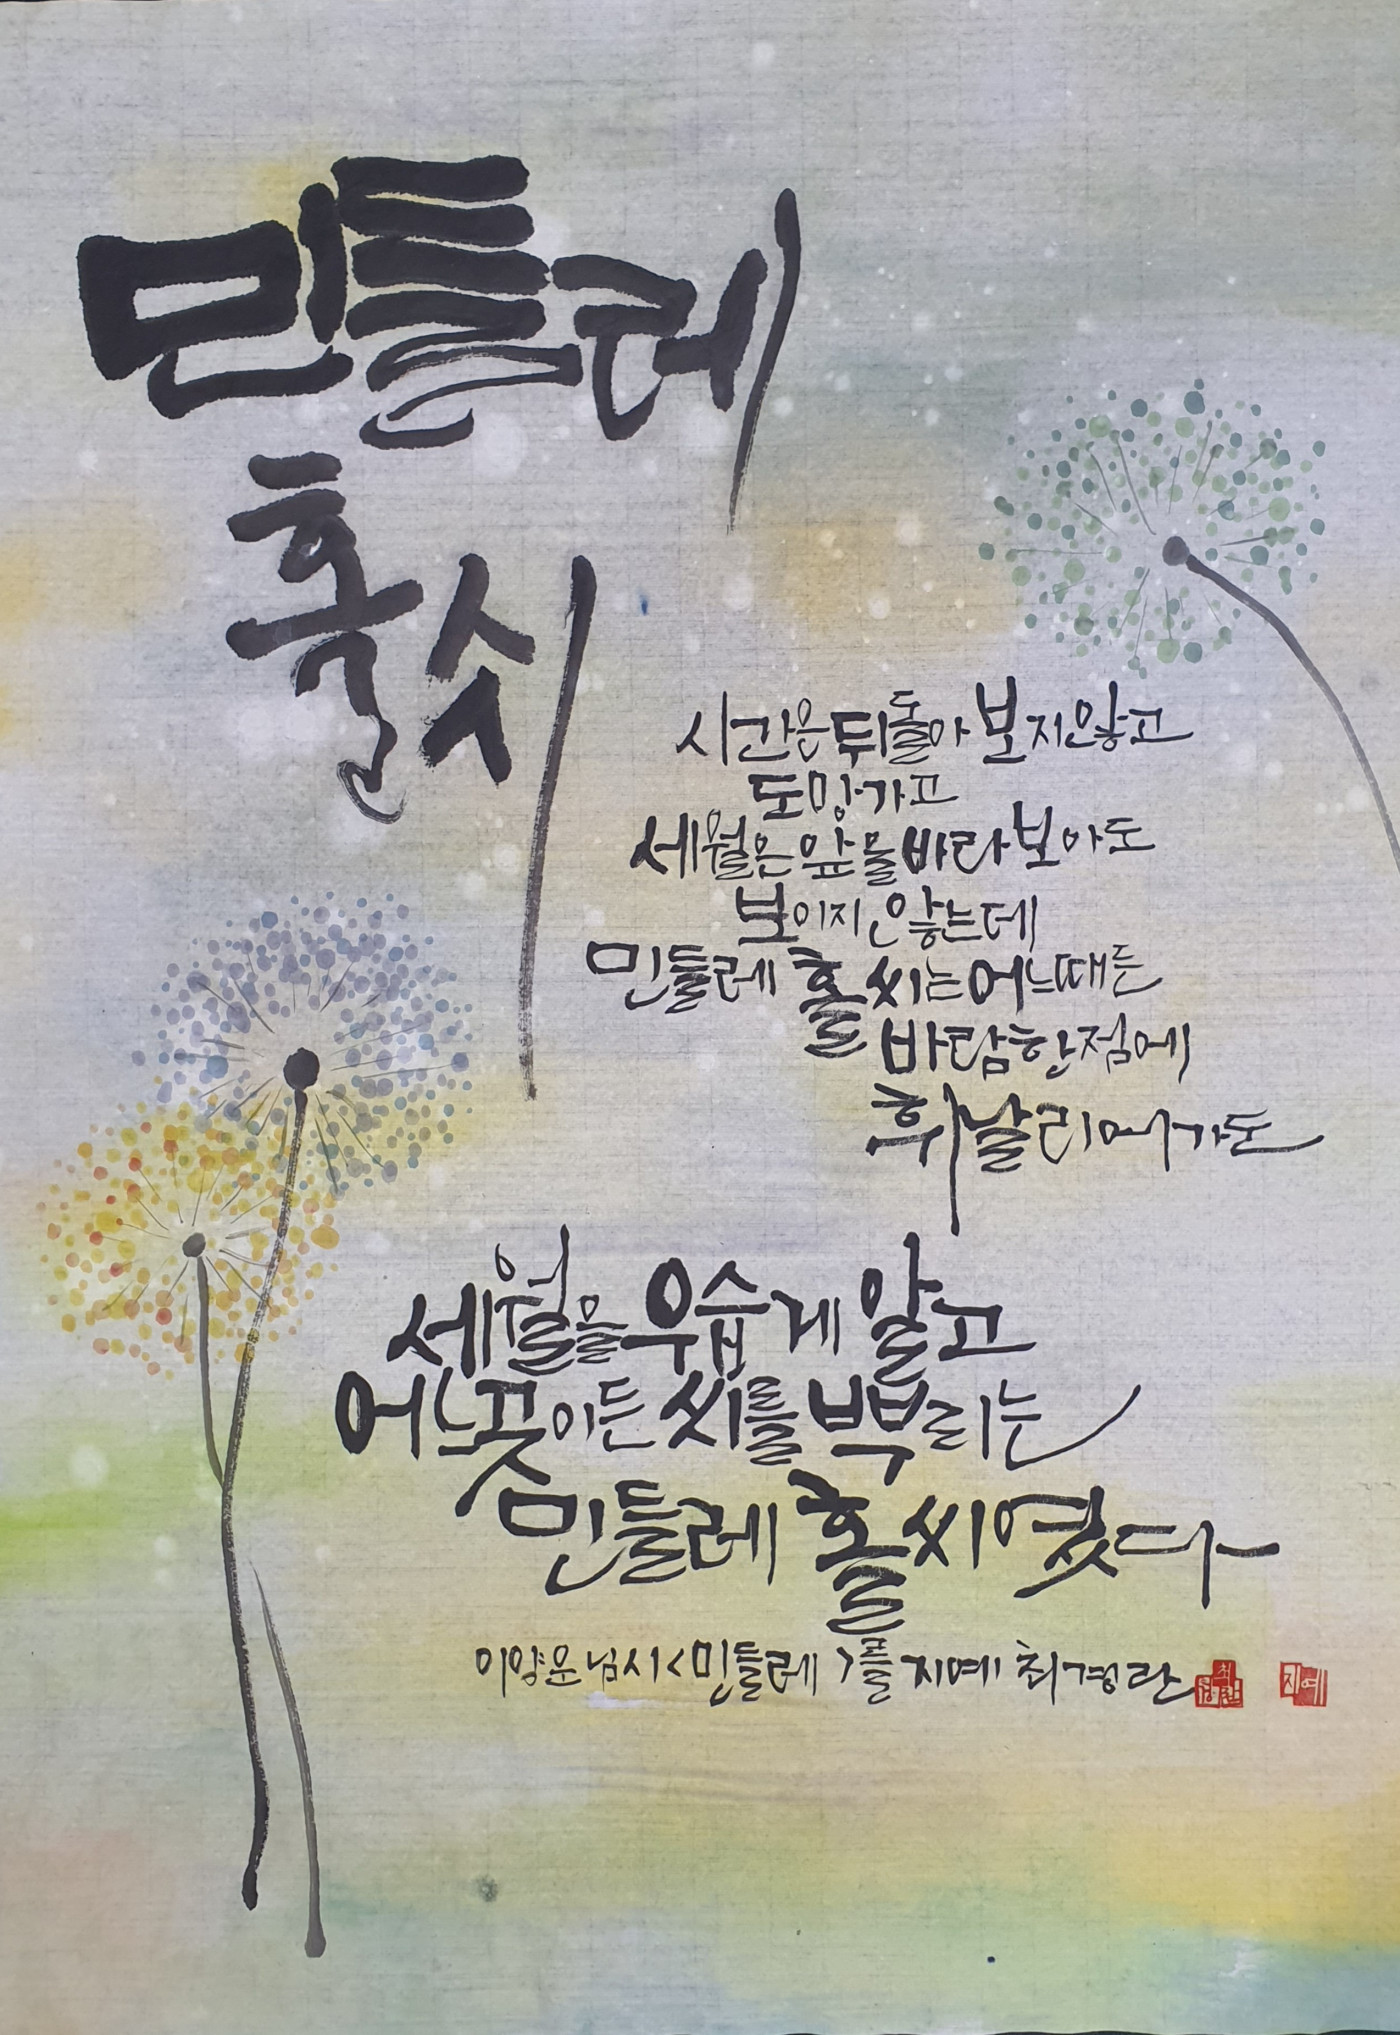 민들레
홀씨
시간은 뒤돌아 보지않고
도망가고
세월은 앞을 바라보아도
보이지 않는데
민들레 홀씨는 어느때든
바람한점에
휘날리어가도
세월을 우습게 알고
어느곳이든 씨를 뿌리는
민들레 홀씨였다
이양운님 시<민들레>를 지예 최경란
최경란
지예